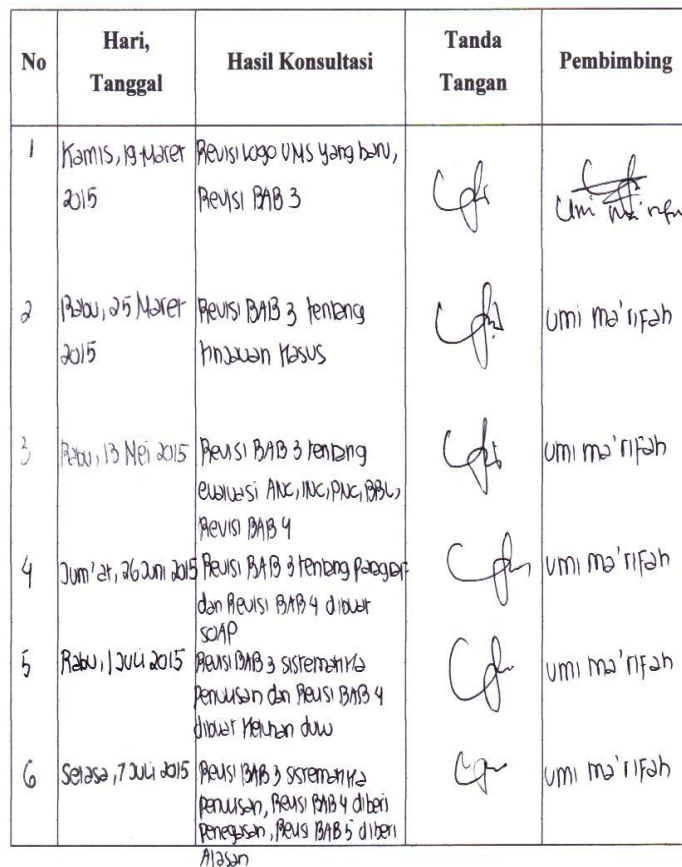 No
Hari,
Tanggal
Hasil Konsultasi
Tanda
Tangan
Pembimbing
1
Kamis, 19 Maret
2015
Revisi Logo UMS yang baru,
Revisi BAB 3
Umi Ma'rifah
2
Rabu, 25 Maret
2015
Revisi BAB 3 tentang
tinjauan kasus
Umi Ma'rifah
3
Rabu, 13 Mei 2015
Revisi BAB 3 tentang
evaluasi ANC, INC, PNC, BBL,
Revisi BAB 4
Umi Ma'rifah
4
Jum'at, 26 Juni 2015
Revisi BAB 3 tentang paragraf
dan Revisi BAB 4 dibuat
SOAP
Umi Ma'rifah
5
Rabu, 1 Juli 2015
Revisi BAB 3 sistematika
penulisan dan Revisi BAB 4
dibuat keluhan dulu
Umi Ma'rifah
6
Selasa, 7 Juli 2015
Revisi BAB 3 sistematika
penulisan, Revisi BAB 4 diberi
Penegasan, Revisi BAB 5 diberi
Alasan
Umi Ma'rifah